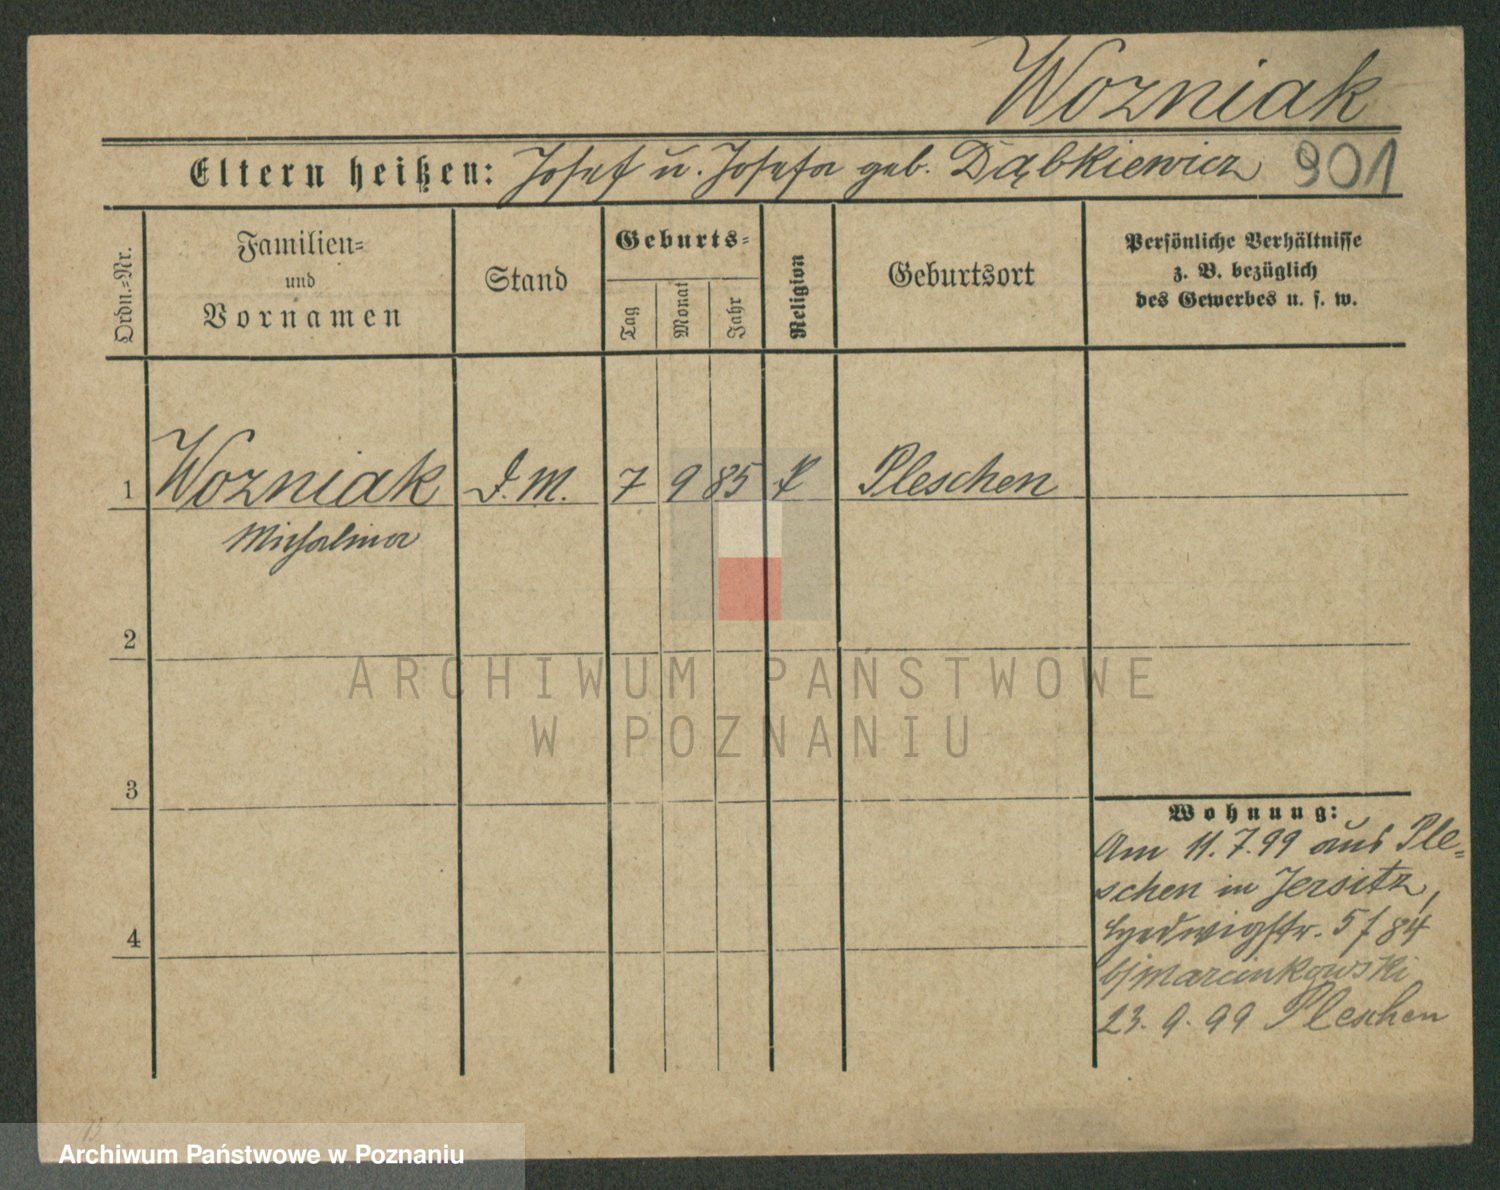 Wozniak
Eltern heißen: Josef u. Josefa geb. Dąbkiewicz 901
Ordn.=Nr.
Familien=
und
Vornamen
Stand
Geburts=
Tag
Monat
Jahr
Religion
Geburtsort
Persönliche Verhältnisse
z. B. bezüglich
des Gewerbes u. s. w.
1 Wozniak D. M. 7 9 85 k Pleschen
Michalina
2
ARCHIWUM PAŃSTWOWE
W POZNANIU
3
4
Wohnung:
Am 11.7.99 aus Ple=
schen in Jersitz,
Hedwigstr. 5 / 84
b/ Marcinkowski
23. 9. 99 Pleschen
Archiwum Państwowe w Poznaniu